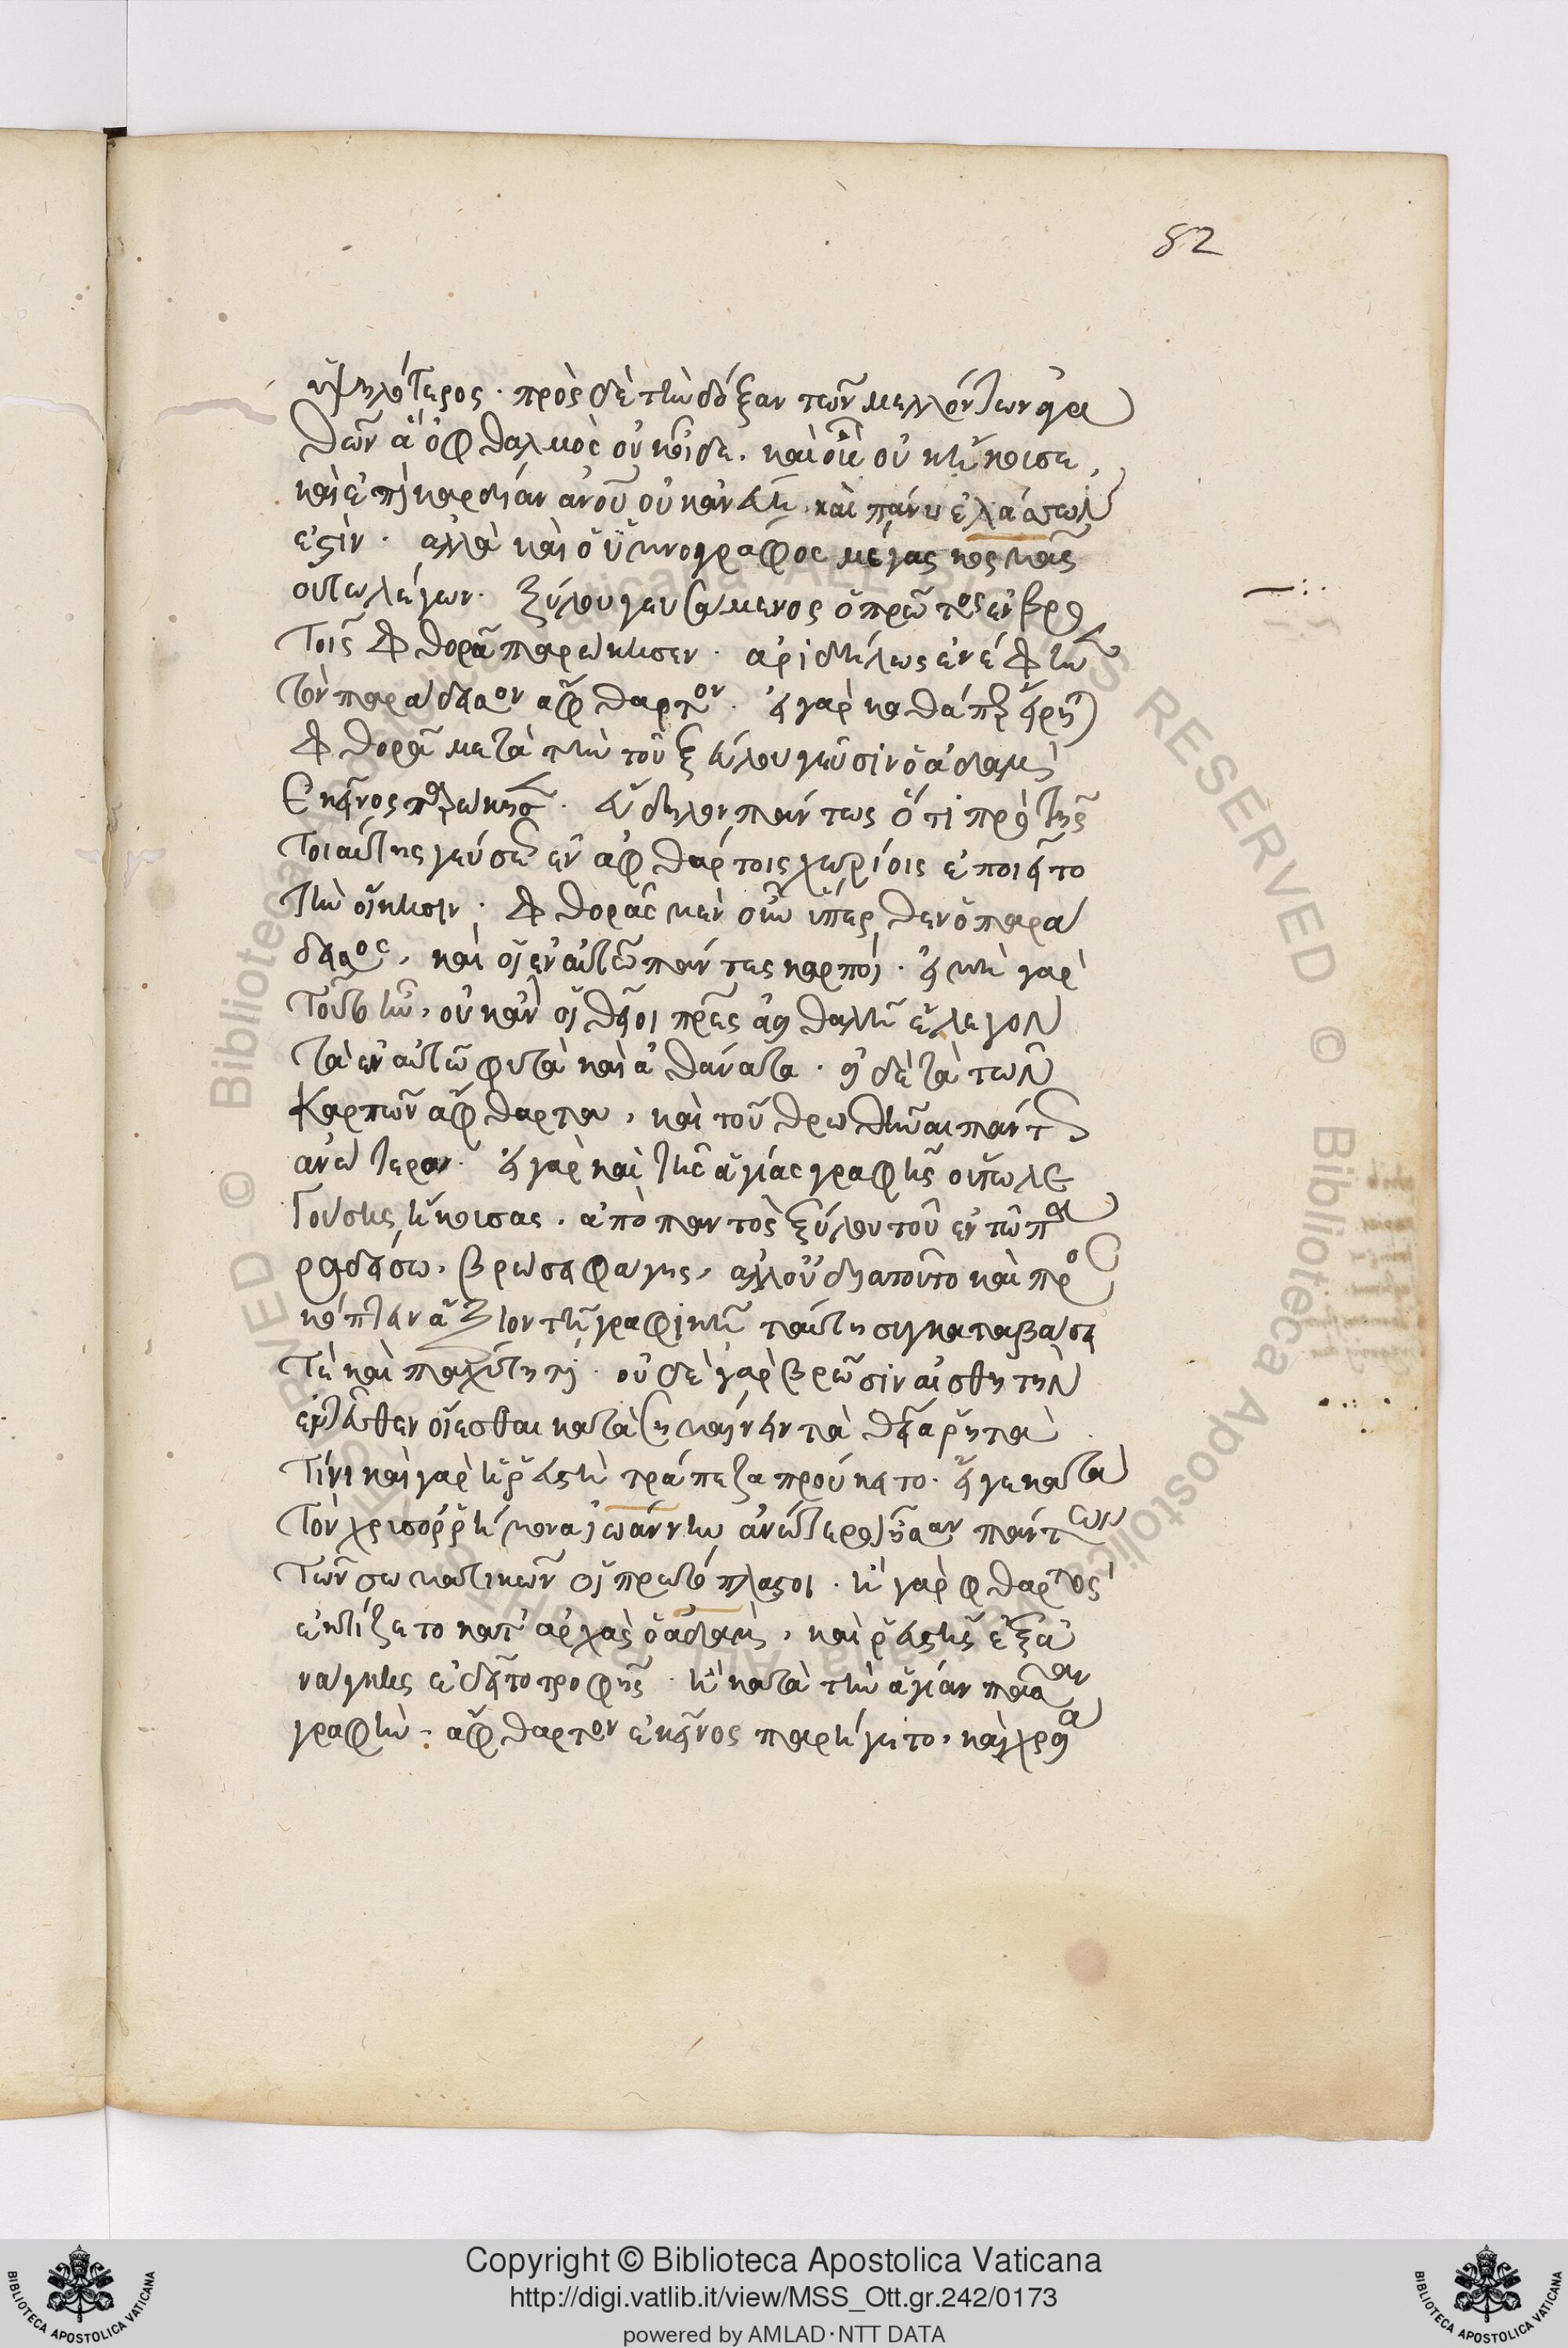 82
ὑψηλότερος · πρὸς δὲ τὴν δόξαν τῶν μελλόντων ἀγα
θῶν ἃ ὀφθαλμὸς οὐκ οἶδε, καὶ οὖς οὐκ ἤκουσε,
καὶ ἐπὶ καρδίαν ἀνου οὐκ ἀνέβη, καὶ πάνυ ἐλάττων
ἐστίν · ἀλλὰ καὶ ὁ ὑμνογράφος μέγας κοσμᾶς
οὕτω λέγων · ξύλου γευσάμενος ὁ πρῶτος ἐν βρο
τοῖς φθορᾷ παρώκησεν · ἀριδήλως ἐνέφηνε
τὸν παράδεισον ἄφθαρτον · εἰ γὰρ καθάπερ εἴρη
φθορᾷ μετὰ τὴν τοῦ ξύλου γεῦσιν ὁ ἀδαμ
ἐκεῖνος παρώκησε · εὔδηλον πάντως ὅτι πρὸ τῆς
τοιαύτης γεύσεως ἐν ἀφθάρτοις χωρίοις ἐποιεῖτο
τὴν οἴκησιν · φθορᾶς μὲν οὖν ὕπερθεν ὁ παρά
δεισος, καὶ οἱ ἐν αὐτῷ πάντες καρποί · εἰ μὴ γὰρ
τοῦτο ἦν, οὐκ ἂν οἱ θεῖοι πρες ἀειθαλῆ ἔλεγον
τὰ ἐν αὐτῷ φυτὰ καὶ ἀθάνατα · εἰ δὲ τὰ τῶν
καρπῶν ἄφθαρτα, καὶ τοῦ βρωθῆναι πάντως
ἀνώτερα · εἰ γὰρ καὶ τῆς ἁγίας γραφῆς οὕτω λε
γούσης ἤκουσας · ἀπὸ παντὸς ξύλου τοῦ ἐν τῷ πα
ραδείσῳ, βρώσει φαγῃς, ἀλλ' οὐ διὰ τοῦτο καὶ προσ
κόπτειν ἄξιον τῇ γραφικῇ ταύτῃ συγκαταβάσει
τὲ καὶ παχύτητι · οὐδὲ γὰρ βρῶσιν αἰσθητὴν
ἐντεῦθεν οἴεσθαι κατασημαίνειν τὰ θεῖα ῥητὰ
τίνι καὶ γὰρ ἡ ῥευστὴ τράπεζα προύκειτο · εἴγε κατὰ
τὸν χρυσορρήμονα ἰωάννην ἀνώτεροι ἦσαν πάντων
τῶν σωματικῶν οἱ πρωτόπλαστοι · ἢ γὰρ φθαρτὸς
ἐκτίζετο κατ' ἀρχὰς ὁ ἀδὰμ, καὶ ῥευστῆς ἐξ ἀ
νάγκης ἐδεῖτο τροφῆς · ἢ κατὰ τὴν ἁγίαν πᾶσαν
γραφὴν · ἄφθαρτον ἐκεῖνος παρήγετο, καὶ χρεία